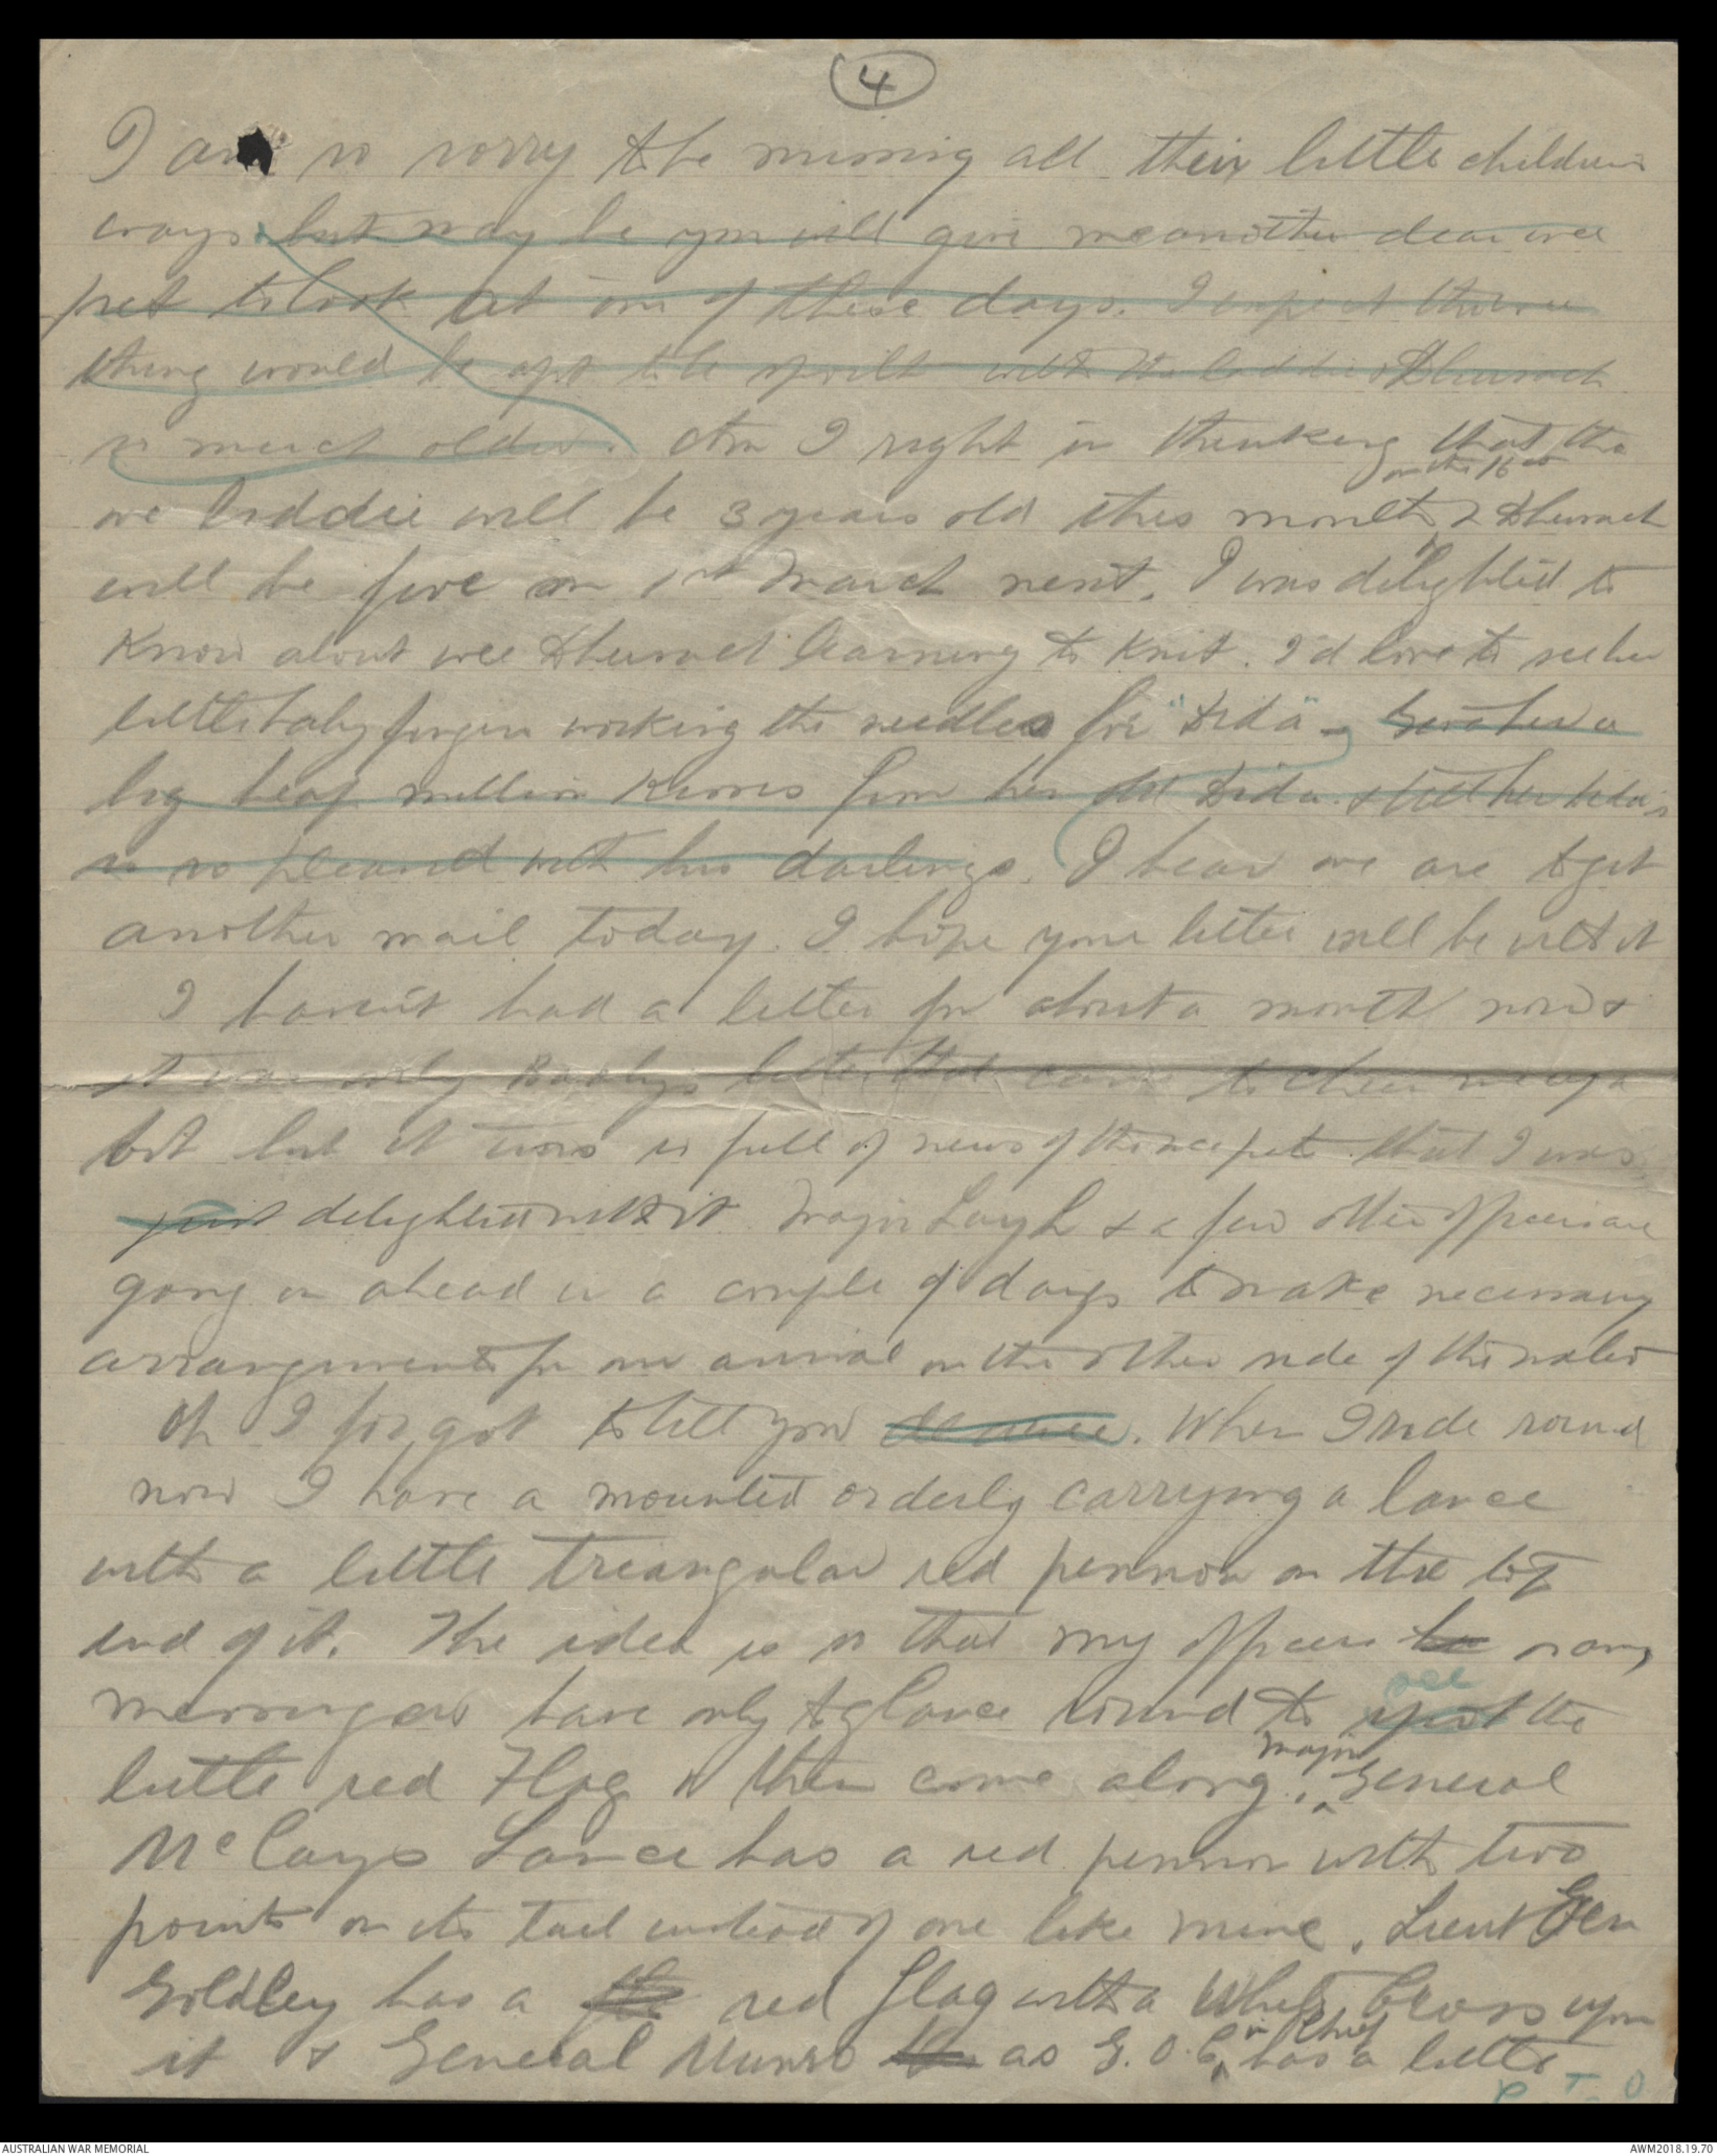 4
I am so sorry to be missing all their little childrens
ways but may be you will give me another dear wee
pet to look at one of these days. I expect the wee
thing would be apt to be spoilt with the laddie &
so much older. Am I right in thinking that the
on the 16th
wee laddie will be 3 years old this month &
will be five on 1st March next. I was delighted to
know about wee learning to knit. I'd love to see her
little baby fingers working the needles for "Dida" - Give her a
big heap million kisses from her old Dida & tell her Dida
is so pleased with his darlings. I hear we are to get
another mail today. I hope your letter will be with it
I haven't had a letter for about a month now &
it was only letter that came to cheer me up a
bit but it was so full of news of the wee pets that I was
just delighted with it. Major Layh & a few other officers are
going on ahead in a couple of days to make necessary
arrangements for our arrival on the other side of the water
Oh I forgot to tell you. When I ride round
now I have a mounted orderly carrying a lance
with a little triangular red pennon on the top
end of it. The idea is so that my officers or any
messengers have only to glance round to spot the
see
little red Flag & then come along. General
Major
McCays Lance has a red pennon with two
points on its tail instead of one like mine. Lieut Gen
Goldley has a red flag with a White Cross upon
it & General Munro as G.O.C. has a little
in Chief
P T O
AUSTRALIAN WAR MEMORIAL
AWM2018.19.70